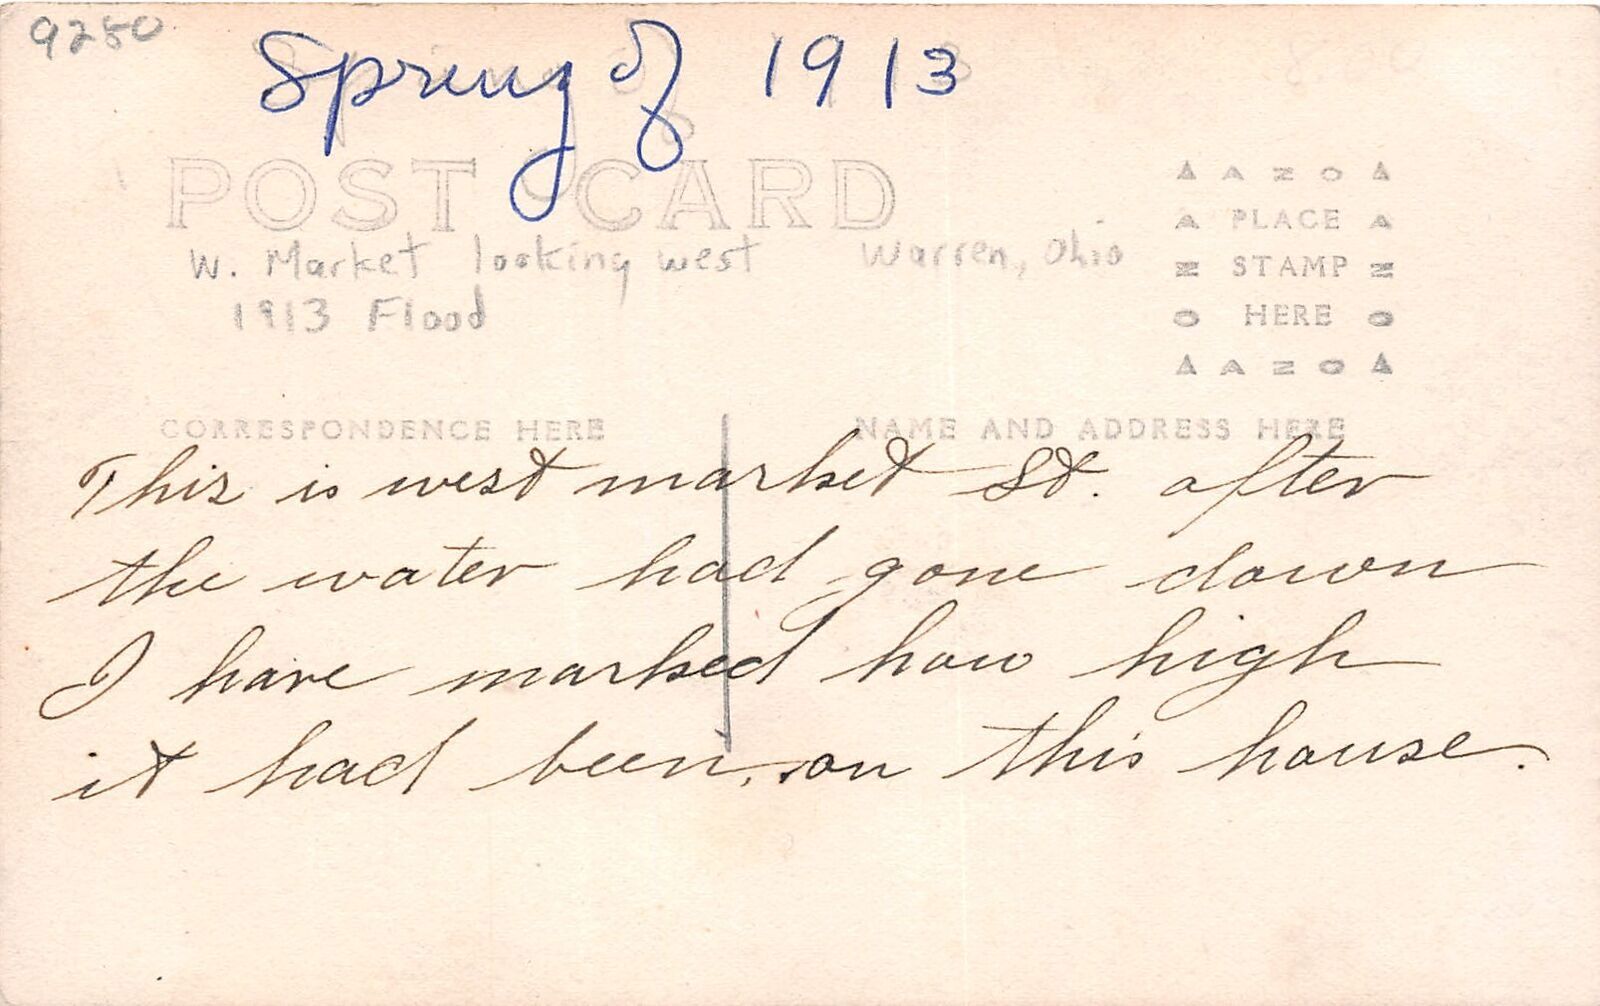 9250
Spring of 1913
POST CARD
W. Market looking west Warren, Ohio
1913 Flood
AZO
PLACE
STAMP
HERE
AZO
CORRESPONDENCE HERE
NAME AND ADDRESS HERE
This is west market St. after
the water had gone down
I have marked how high
it had been, on this house.